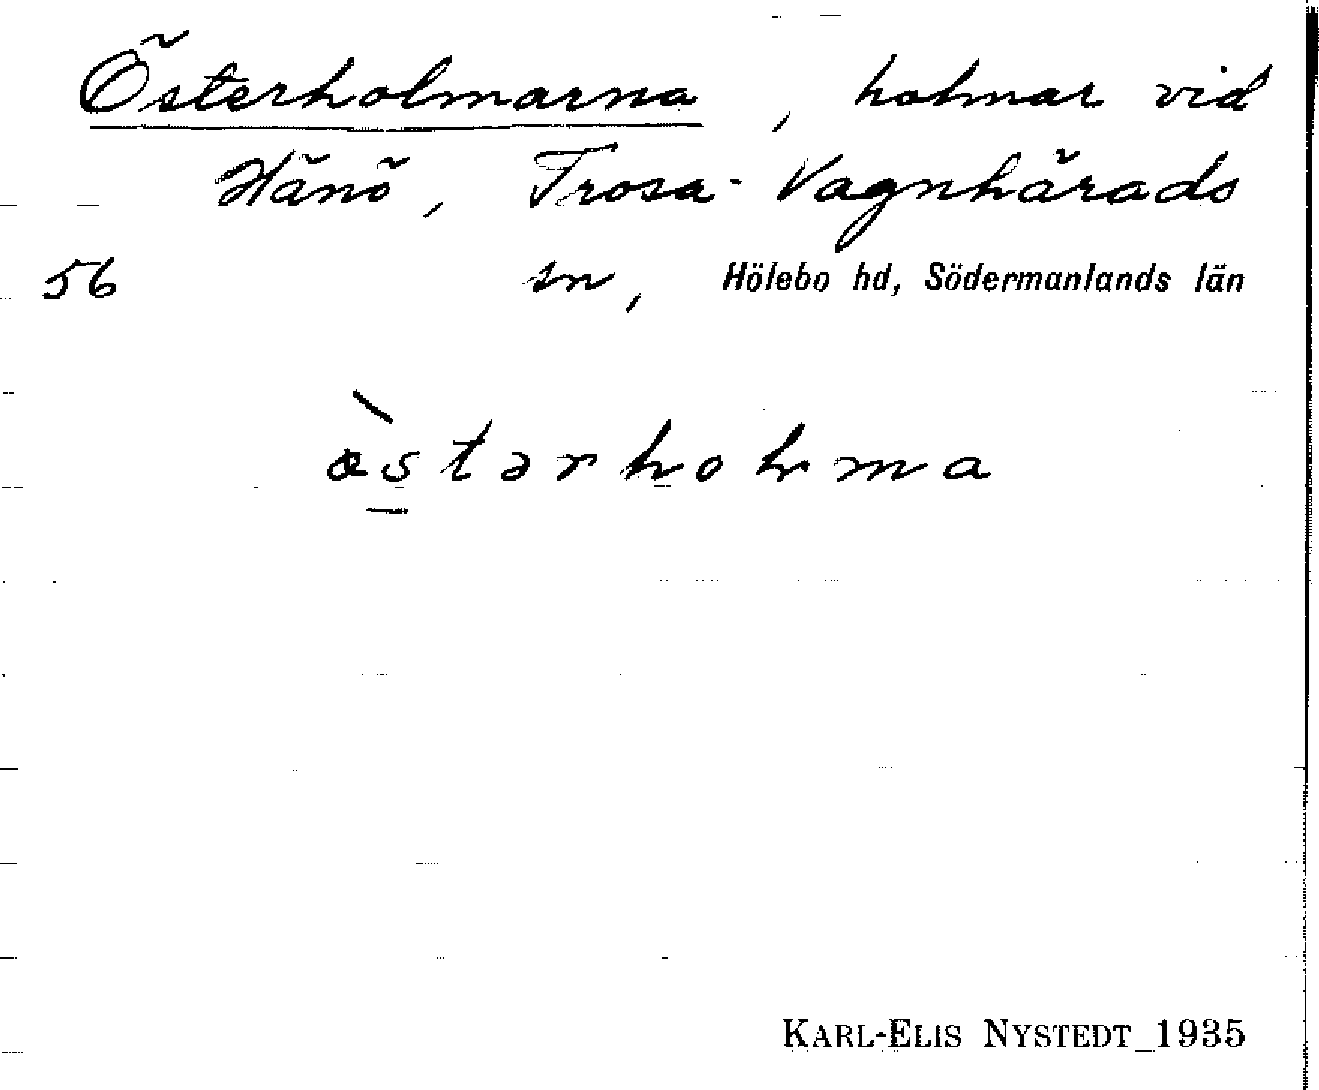 Österholmarna, holmar vid
Hänö, Trosa-Vagnhärads
56 sn, Hölebo hd, Södermanlands län
KARL-ELIS NYSTEDT 1935